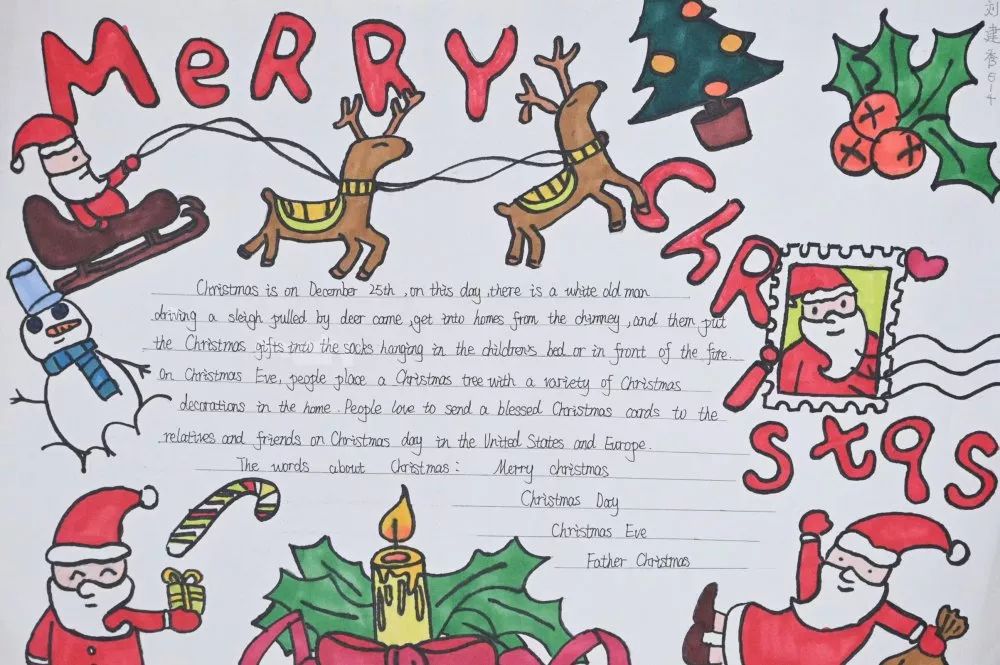 MeRRY
刘建秀6-4
ChRistas
Christmas is on December 25th ,on this day ,there is a white old man
driving a sleigh pulled by deer came ,get into homes from the chimney ,and them put
the Christmas gifts into the socks hanging in the children's bed or in front of the fire.
On Christmas Eve, people place a Christmas tree with a variety of Christmas
decorations in the home. People love to send a blessed Christmas cards to the
relatives and friends on Christmas day in the United States and Europe.
The words about Christmas: Merry christmas
Christmas Day
Christmas Eve
Father Christmas